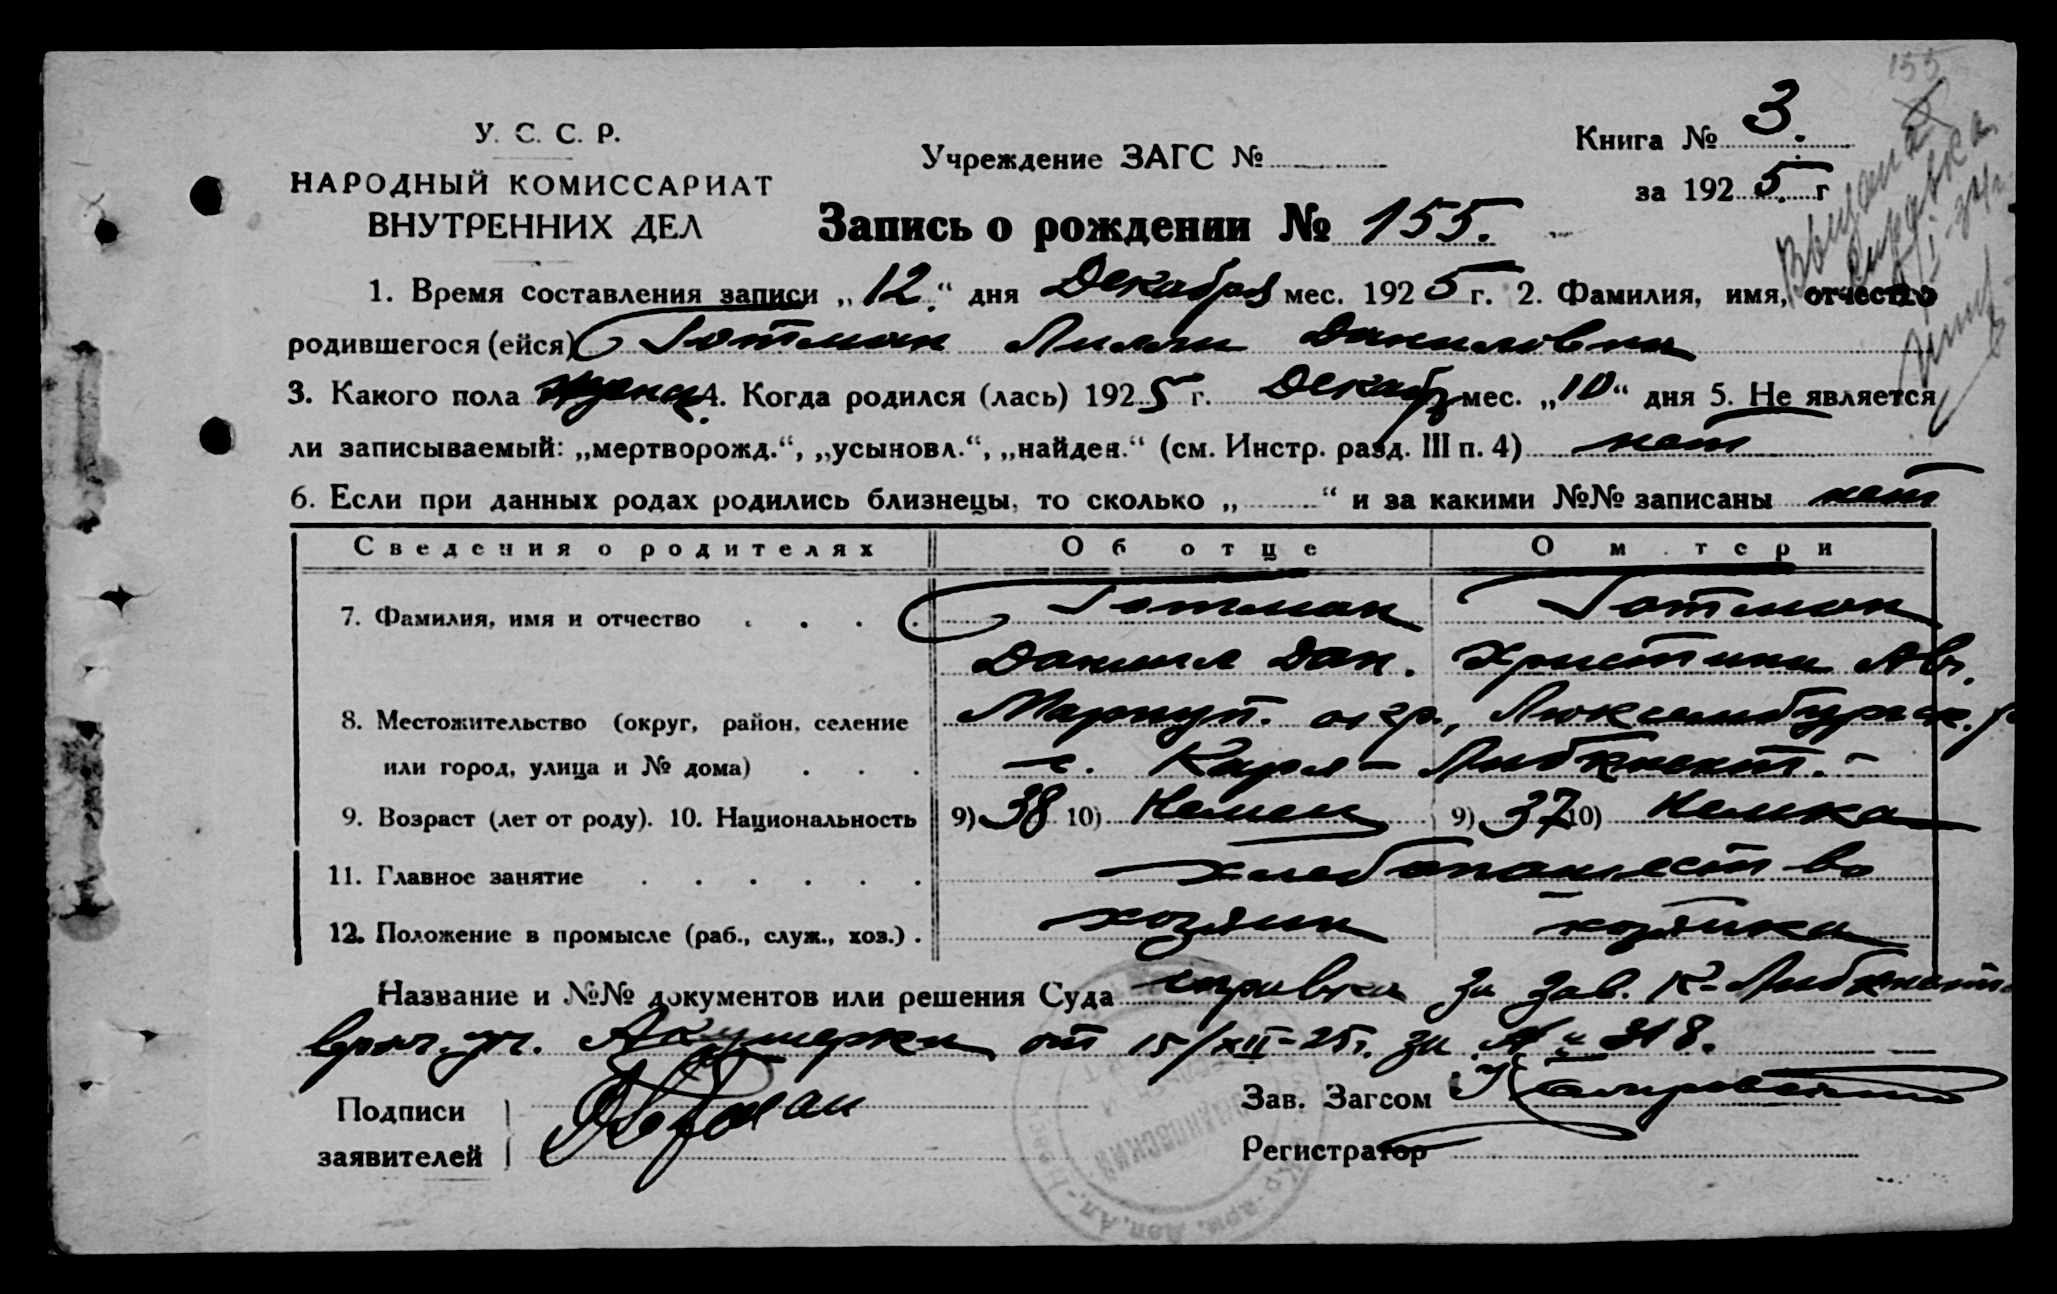 155
У. С. С. Р.
НАРОДНЫЙ КОМИССАРИАТ
ВНУТРЕННИХ ДЕЛ
Учреждение ЗАГС №
Книга № 3.
за 1925 г
Запись о рождении № 155.
Выдана
справка
1. Время составления записи „12.“ дня Декабря мес. 1925 г. 2. Фамилия, имя, отчество
родившегося (ейся) Готман Лилли Даниловна
3. Какого пола женск. 4. Когда родился (лась) 1925 г. Декабр мес. „10“ дня 5. Не является
ли записываемый: „мертворожд.“, „усыновл.“, „найден.“ (см. Инстр. разд. III п. 4) нет
6. Если при данных родах родились близнецы, то сколько „ “ и за какими №№ записаны нет
Сведения о родителях Об отце О м тери
7. Фамилия, имя и отчество Готман Готман
Даниил Дан. Христина Авг.
8. Местожительство (округ, район, селение Мариуп. окр., Люксембургск. р
или город, улица и № дома) с. Карл-Либкнехт.-
9. Возраст (лет от роду). 10. Национальность 9) 38 10) Немец 9) 37 10) Немка
11. Главное занятие хлебопашество
12. Положение в промысле (раб., служ., хоз.) хозяин хозяйка
Название и №№ документов или решения Суда справка за зав. К-Либкнехт
врач. уч. Акушерки от 15/XII-25г. за № 318.
Подписи
заявителей
Зав. Загсом
Регистратор